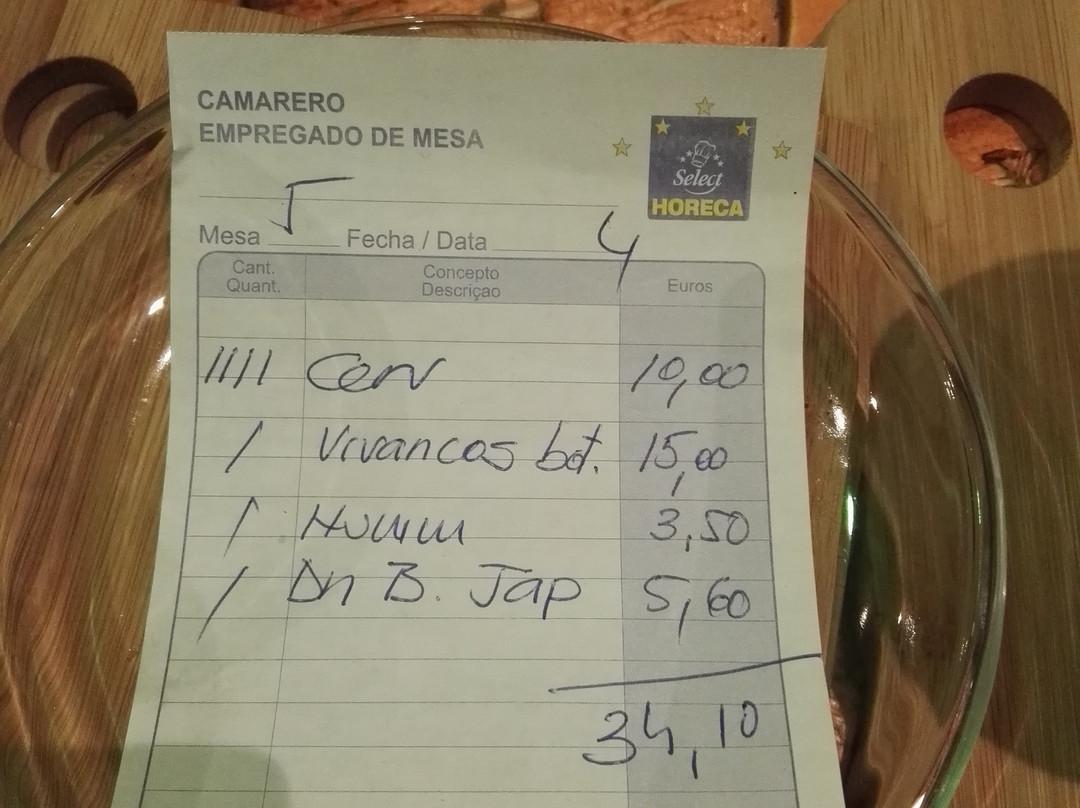 CAMARERO
EMPREGADO DE MESA
Select
HORECA
Mesa 5 Fecha / Data 4
Cant. Quant. Concepto Descriçao Euros
//// Cerv 10,00
/ Vivancos bot. 15,00
/ Humm 3,50
/ B. Jap 5,60
34,10